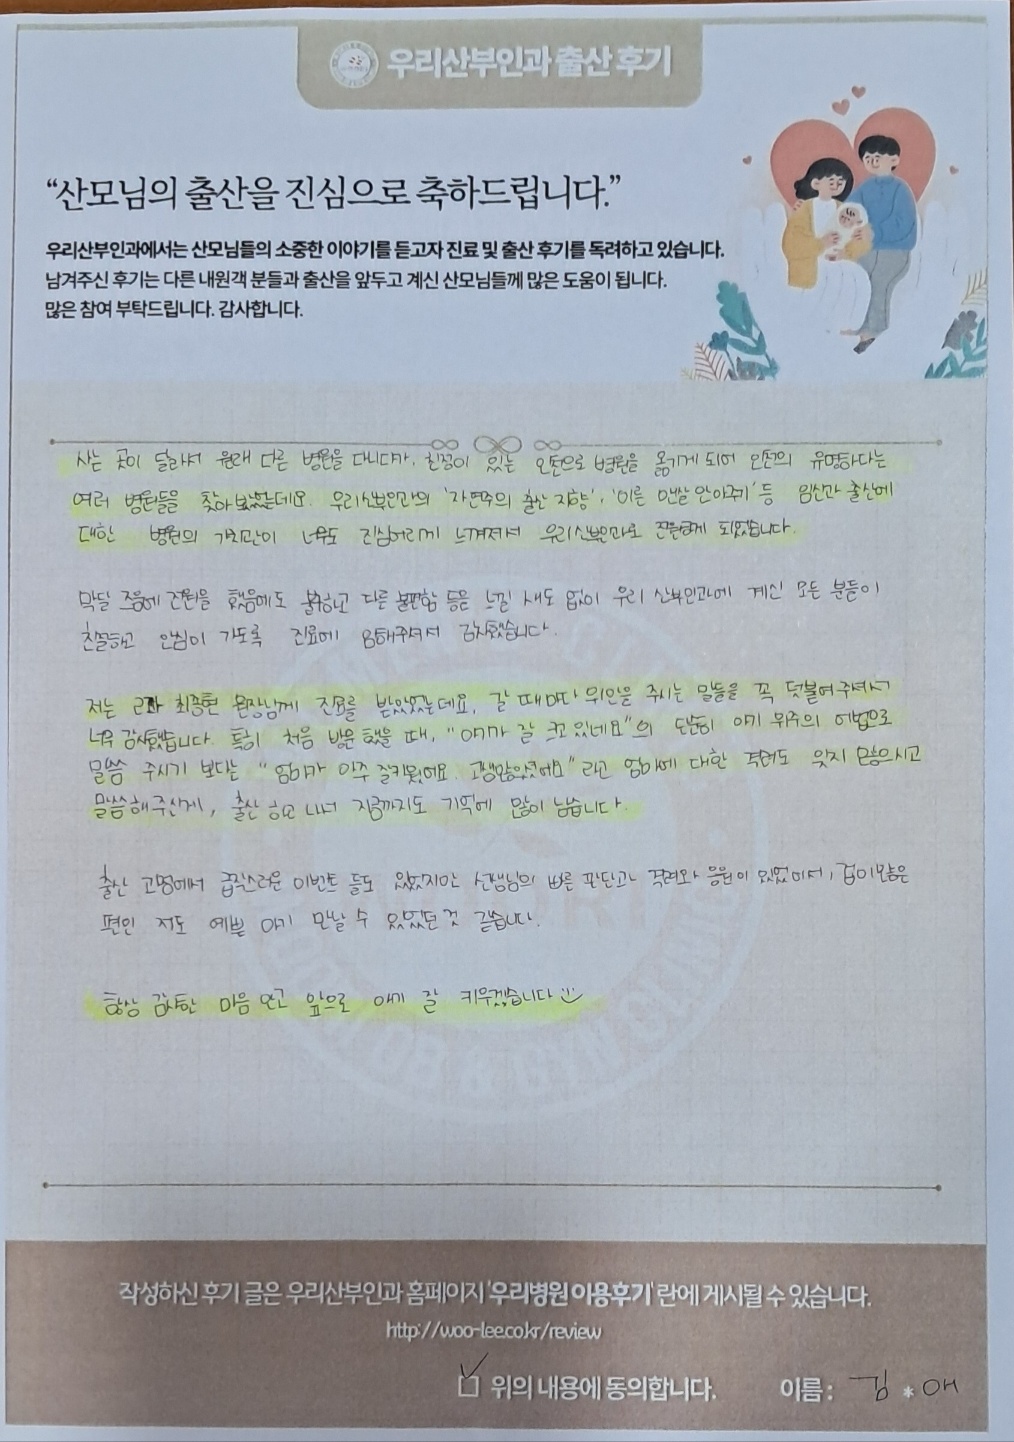 우리산부인과 출산 후기
“산모님의 출산을 진심으로 축하드립니다.”
우리산부인과에서는 산모님들의 소중한 이야기를 듣고자 진료 및 출산 후기를 독려하고 있습니다.
남겨주신 후기는 다른 내원객 분들과 출산을 앞두고 계신 산모님들께 많은 도움이 됩니다.
많은 참여 부탁드립니다. 감사합니다.
사는 곳이 달라서 원래 다른 병원을 다니다가, 친정이 있는 오산으로 병원을 옮기게 되어 오산의 유명하다는
여러 병원들을 찾아보았는데요. 우리산부인과의 '자연주의 출산 지향', '이른 맨살 안아주기' 등 임신과 출산에
대한 병원의 가치관이 너무도 진심어리게 느껴져서 우리산부인과로 전원하게 되었습니다.
막달 즈음에 전원을 했음에도 불구하고 다른 불편함 등을 느낄 새도 없이 우리 산부인과에 계신 모든 분들이
친절하고 안심이 가도록 진료에 임해주셔서 감사했습니다.
저는 2과 최종현 원장님께 진료를 받았었는데요, 갈 때마다 위안을 주시는 말들을 꼭 덧붙여주셔서
너무 감사했습니다. 특히 처음 방문했을 때, "아기가 잘 크고 있네요"의 단순히 아기 위주의 어법으로
말씀 주시기 보다는 "엄마가 아주 잘키웠어요. 고생많았겠어요" 라고 엄마에 대한 격려도 잊지 않으시고
말씀해주신게, 출산 하고 나서 지금까지도 기억에 많이 남습니다.
출산 과정에서 갑작스러운 이벤트 들도 있었지만 선생님의 빠른 판단과 격려와 응원이 있었어서, 겁이많은
편인 저도 예쁜 아기 만날 수 있었던 것 같습니다.
항상 감사한 마음 안고 앞으로 아기 잘 키우겠습니다
작성하신 후기 글은 우리산부인과 홈페이지 '우리병원 이용후기' 란에 게시될 수 있습니다.
http://woo-lee.co.kr/review
위의 내용에 동의합니다. 이름 : 김 * 애